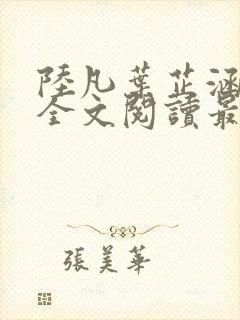 陸凡葉芷涵
全文閱讀最
張美華